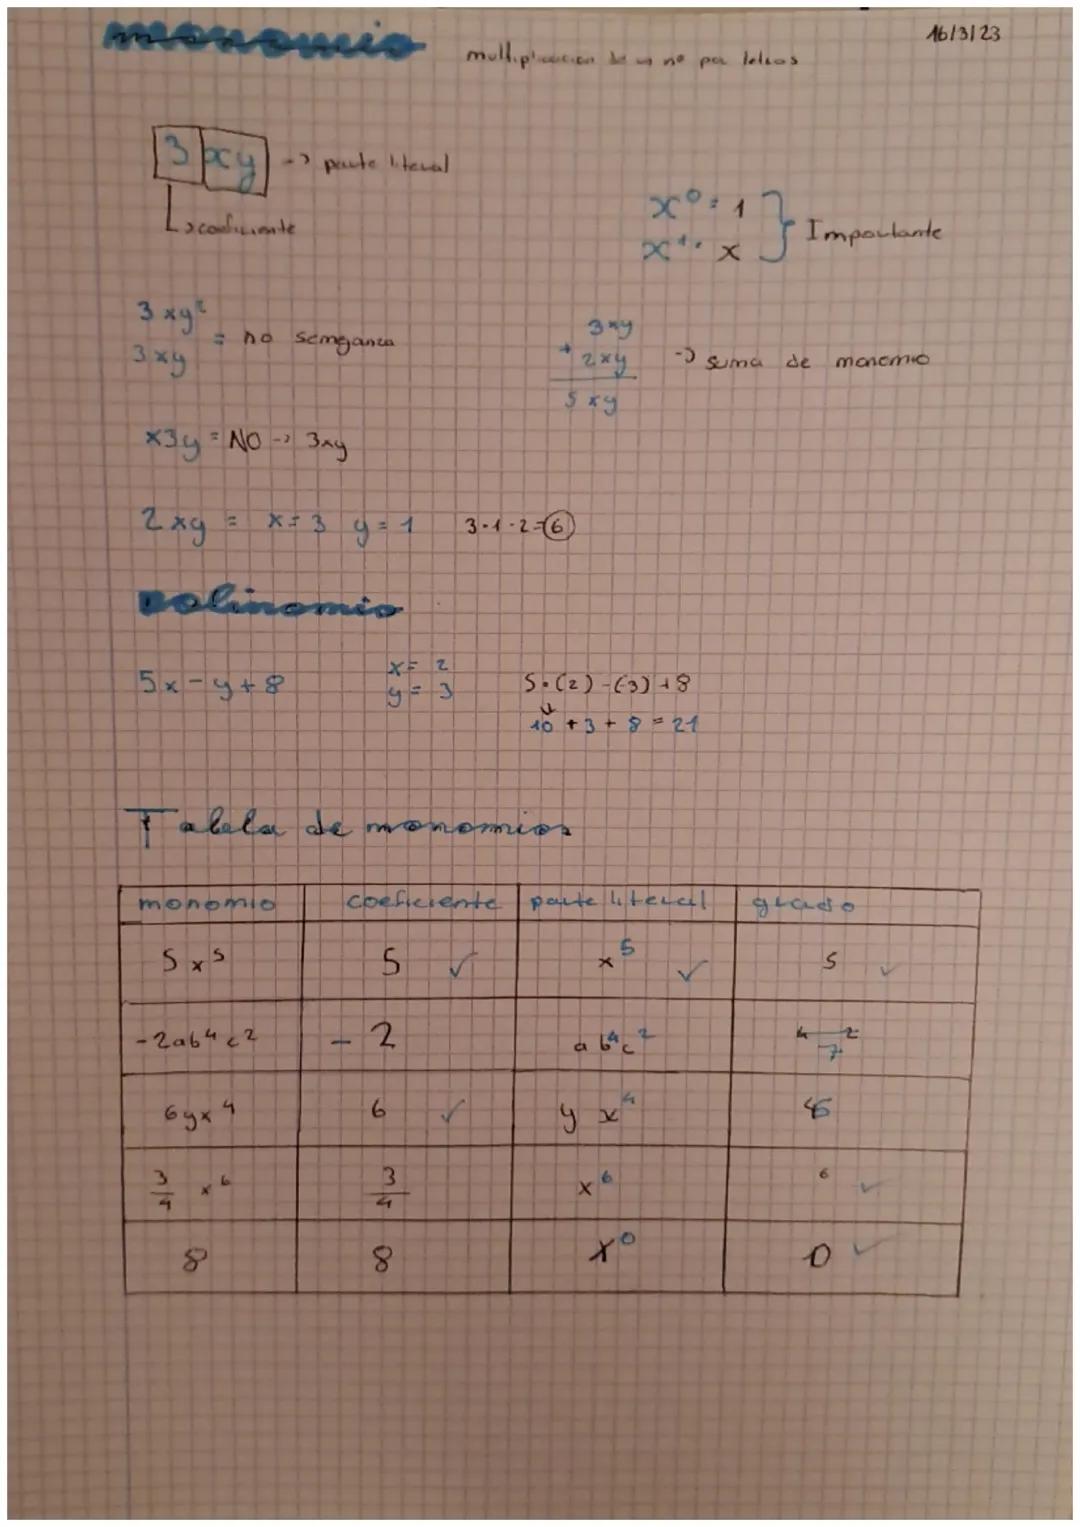 monomio
16/3/23
multiplicación de un nº por letras
3 xy -> parte literal
coeficiente
x⁰ = 1
x¹ = x
Importante
3xy²
3xy
= no semganza
3xy
+ 2xy
5xy
-> suma de monomio
x3y = NO -> 3xy
2xy = x=3 y=1 3·1·2=6
polinomio
5x-y+8
x= 2
y= 3
5·(2)-(-3)+8
10 + 3 + 8 = 21
Tabla de monomios
monomio coeficiente parte literal grado
5x⁵ 5 ✓ x⁵ ✓ 5 ✓
-2ab⁴c² -2 ab⁴c² 7
6yx⁴ 6 ✓ y x⁴
3/4 x⁶ 3/4 x⁶ 6 ✓
8 8 x⁰ 0 ✓